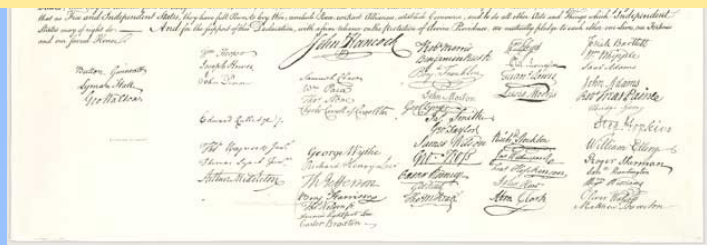 that as Free and Independent States, they have full Power to levy War, conclude Peace, contract Alliances, establish Commerce, and to do all other Acts and Things which Independent
States may of right do. And for the support of this Declaration, with a firm reliance on the protection of divine Providence, we mutually pledge to each other our Lives, our Fortunes
and our sacred Honor.
Button Gwinnett
Lyman Hall
Geo Walton
Wm Hooper
Joseph Hewes
John Penn
Edward Rutledge
Thos Heyward Junr
Thomas Lynch Junr
Arthur Middleton
John Hancock
Samuel Chase
Wm Paca
Thos Stone
Charles Carroll of Carrollton
George Wythe
Richard Henry Lee
Th Jefferson
Benj Harrison
Thos Nelson jr
Francis Lightfoot Lee
Carter Braxton
Robt Morris
Benjamin Rush
Benj Franklin
John Morton
Geo Clymer
Jas Smith
Geo Taylor
James Wilson
Geo Ross
Caesar Rodney
Geo Read
Tho M:Kean
Wm Floyd
Phil Livingston
Frans Lewis
Lewis Morris
Richd Stockton
Jno Witherspoon
Fras Hopkinson
John Hart
Abra Clark
Josiah Bartlett
Wm Whipple
Saml Adams
John Adams
Robt Treat Paine
Elbridge Gerry
Step Hopkins
William Ellery
Roger Sherman
Saml Huntington
Wm Williams
Oliver Wolcott
Matthew Thornton